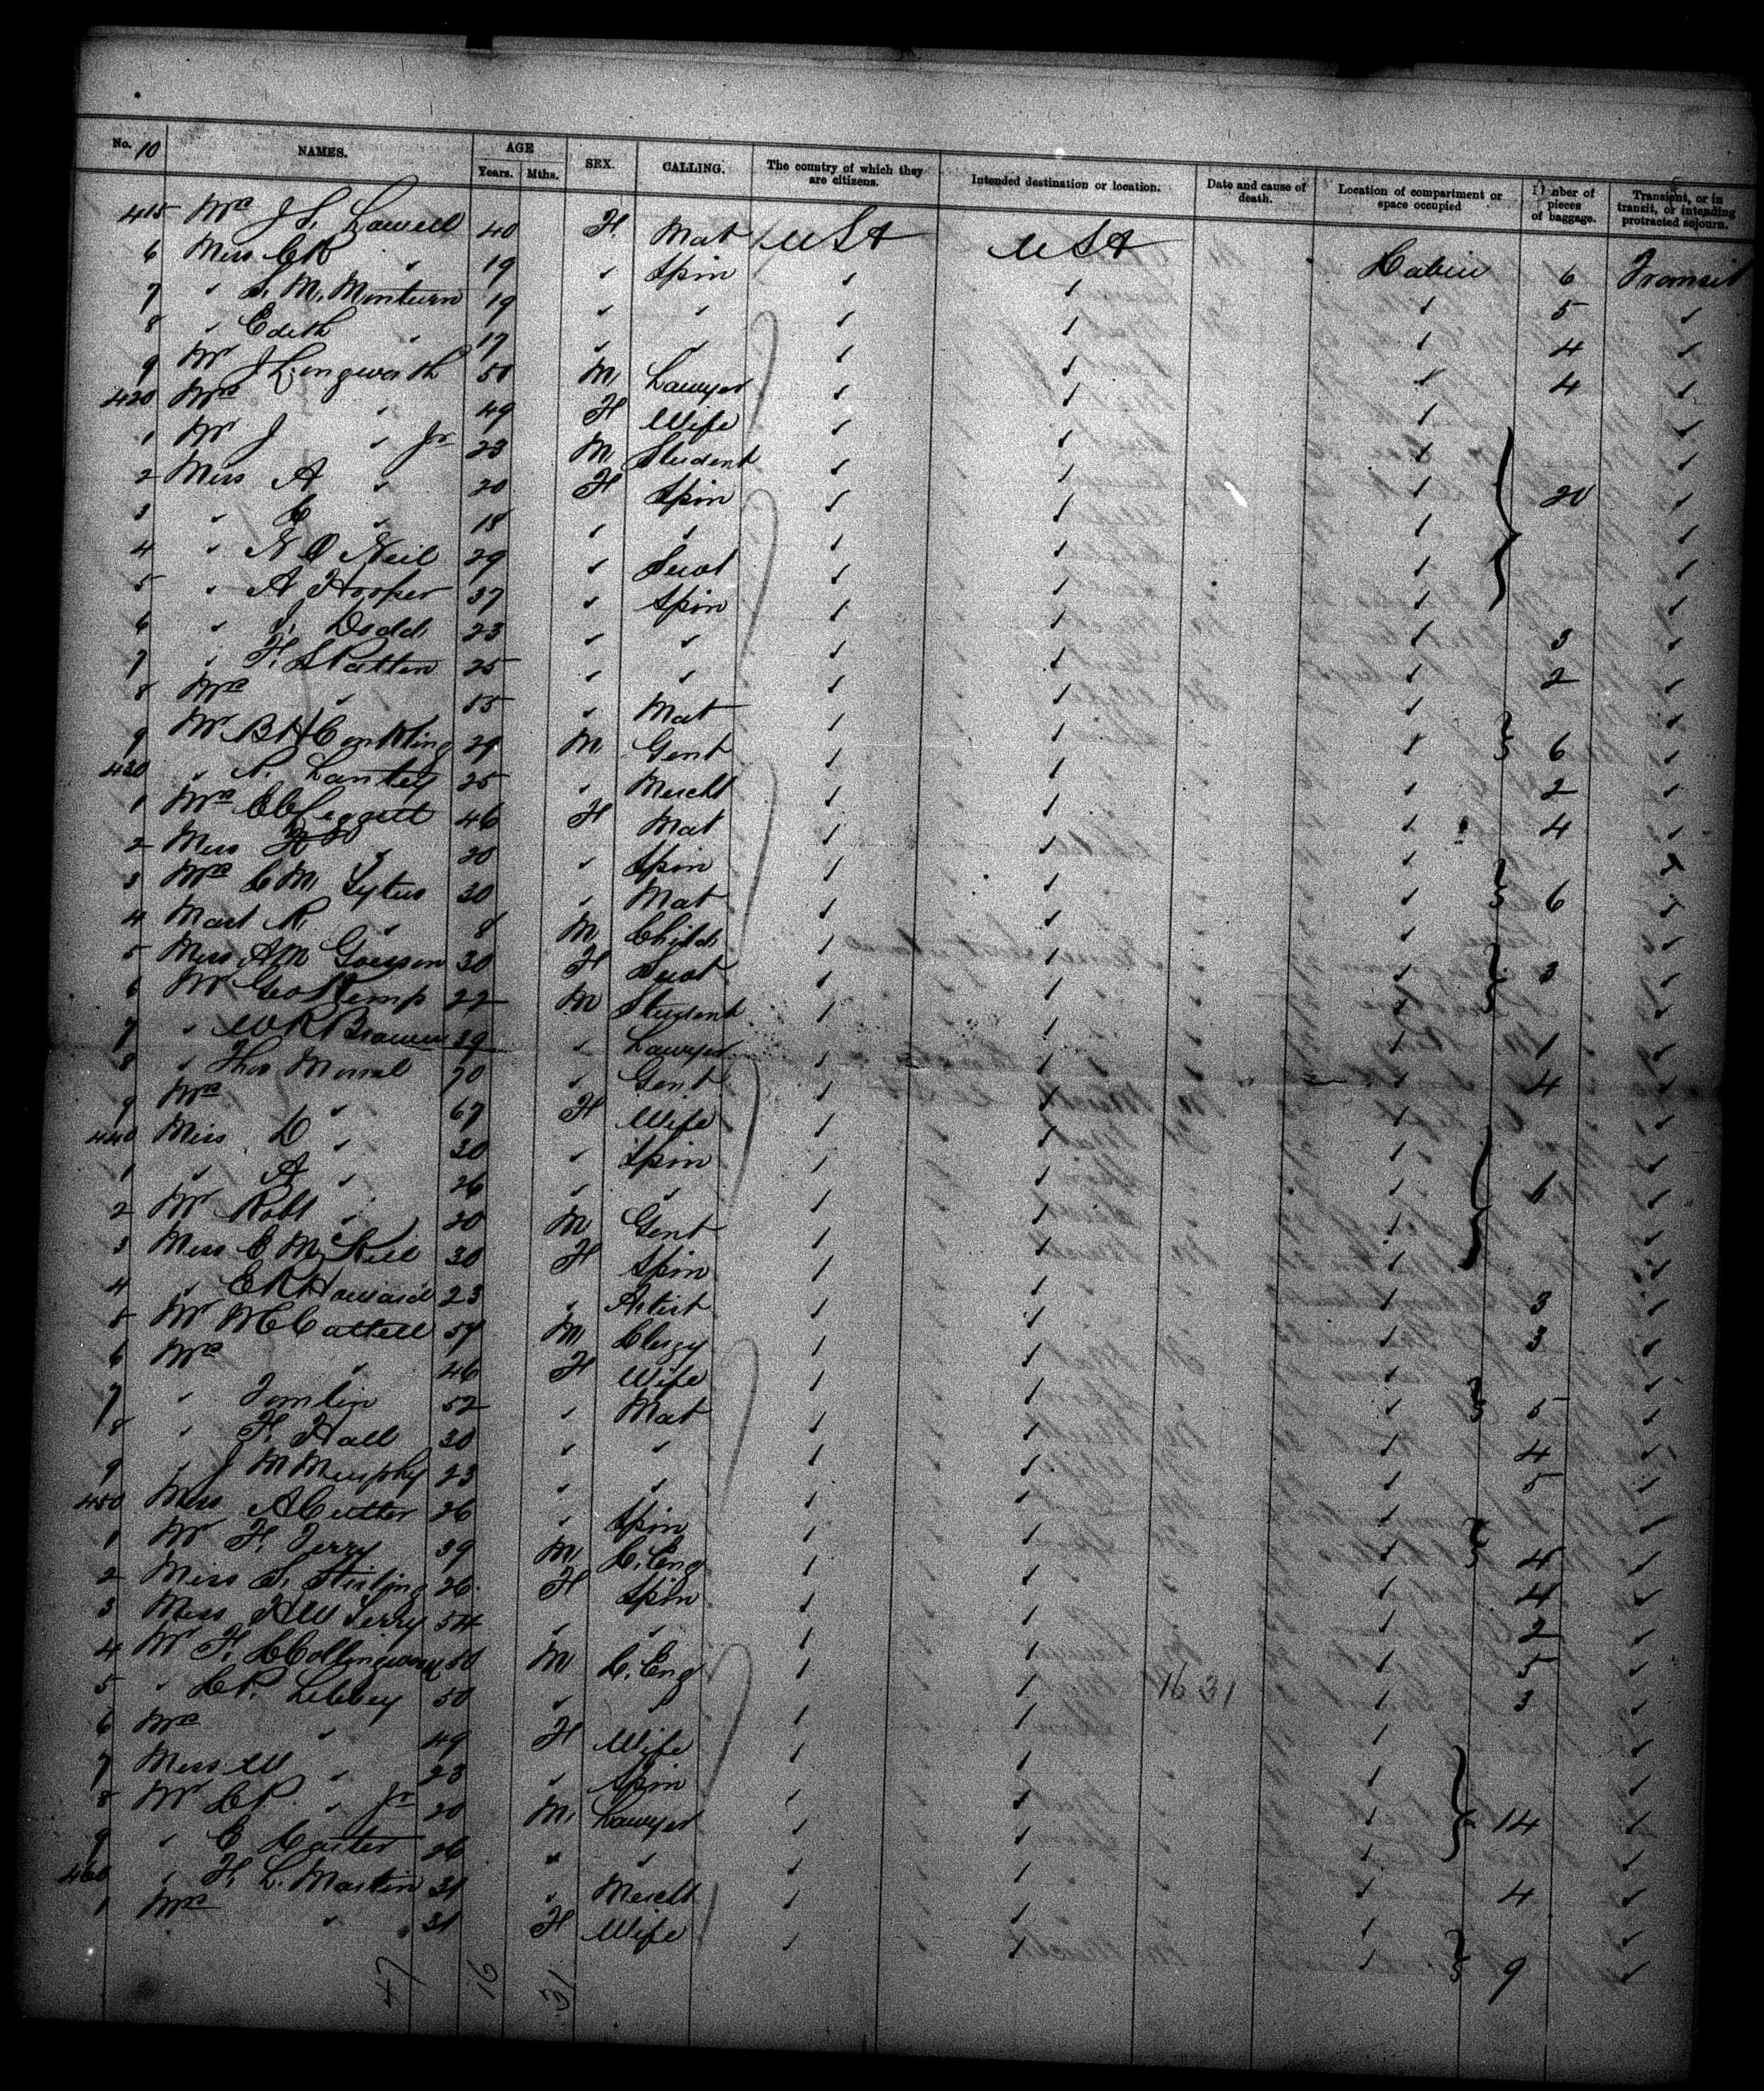 No. 10 NAMES. AGE Years. Mths. SEX. CALLING. The country of which they are citizens. Intended destination or location. Date and cause of death. Location of compartment or space occupied Number of pieces of baggage. Transient, or in transit, or intending protracted sojourn.
415 Mrs J S. Lowell 40 F. Mat USA USA Cabin 6 Transit
6 Miss C R " 19 " Spin " " " 5 "
7 " S. M. Minturn 19 " " " " " 4 "
8 " Edith " 17 " " " " " 4 "
9 Mr J Longworth 50 M. Lawyer " " " "
420 Mrs " 49 F Wife " " " "
1 Mr J " Jr 23 M. Student " " " "
2 Miss A " 20 F Spin " " " 20 "
3 " C " 18 " " " " " "
4 " N O Neil 29 " Servt " " " "
5 " A Hooper 37 " Spin " " " 3 "
6 " S. Dodd 23 " " " " " 2 "
7 " F. S Patten 25 " " " " " "
8 Mrs " 55 " Mat " " " 6 "
9 Mr B H Conkling 29 M Gent " " " 2 "
430 " Lantey 25 " Mercht " " " 4 "
1 Mrs E C Leggett 46 F Mat " " "
2 Miss " 20 " Spin " " " 6
3 Mrs C M. Lytus 30 " Mat " " " "
4 Mast R. " 8 M. Child " " " 3 "
5 Miss A M 30 F Servt " " " "
6 Mr Geo Kemp 22 M Student " " " 1 "
7 " W R Brown 39 " Lawyer " " " 4 "
8 " Thos 70 " Gent " " " "
9 Mrs " 67 F Wife " " " "
440 Miss D " 30 " Spin " " " "
1 " A " 26 " " " " " "
2 Mr Robt " 20 M Gent " " " "
3 Miss E M. 30 F Spin " " " 3 "
4 " E R Howard 23 " Artist " " " 3 "
5 Mr W C Cattell 57 M. Clergy " " " "
6 Mrs " 46 F Wife " " " 5 "
7 " Tomlin 52 " Mat " " " 4 "
8 " F. Hall 30 " " " " " 5 "
9 " J M Murphy 23 " " " " " "
450 Miss A Cutter 26 " Spin " " " 4 "
1 Mr F. Terry 39 M. C. Eng " " " 4 "
2 Miss S. Stirling 26 F Spin " " " 2 "
3 Miss H W Terry 54 " " " " " 5 "
4 Mr F. Collingwood 50 M C. Eng " " 16 31 " 3 "
5 " C P. Libbey 50 " " " " "
6 Mrs " 49 F Wife " " " "
7 Miss W " 23 " Spin " " " "
8 Mr C P. " Jr 20 M. Lawyer " " " 14 "
9 " E Carter 26 " " " " " 4 "
460 " F. L. Martin 31 " Mercht " " " "
1 Mrs " 31 F Wife " " " 9 "
47 16 31